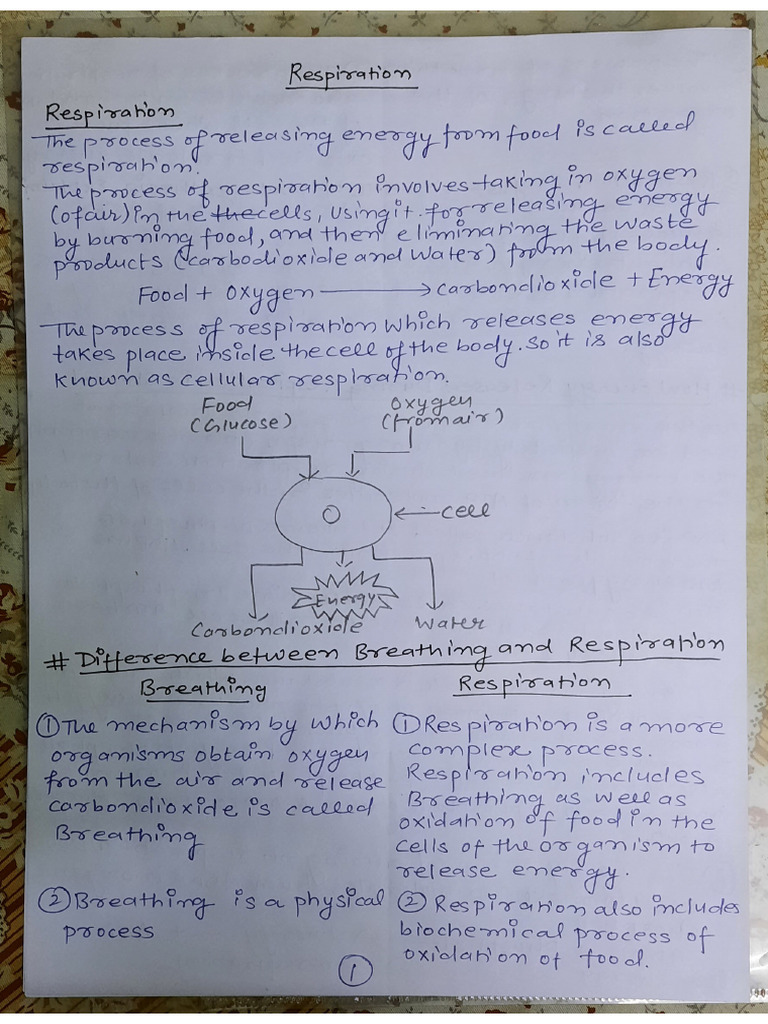 Respiration
Respiration
The process of releasing energy from food is called
respiration.
The process of respiration involves taking in oxygen
(of air) in the the cells, using it for releasing energy
by burning food, and then eliminating the waste
products (carbodioxide and water) from the body.
Food + Oxygen → Carbondioxide + Energy
The process of respiration which releases energy
takes place inside the cell of the body. so it is also
known as cellular respiration.
Food
(Glucose)
Oxygen
(from air)
cell
Energy
Carbondioxide
Water
# Difference between Breathing and Respiration
Breathing
① The mechanism by which
organisms obtain oxygen
from the air and release
carbondioxide is called
Breathing
② Breathing is a physical
process
Respiration
① Respiration is a more
complex process.
Respiration includes
Breathing as well as
oxidation of food in the
cells of the organism to
release energy.
② Respiration also includes
biochemical process of
oxidation of food.
①